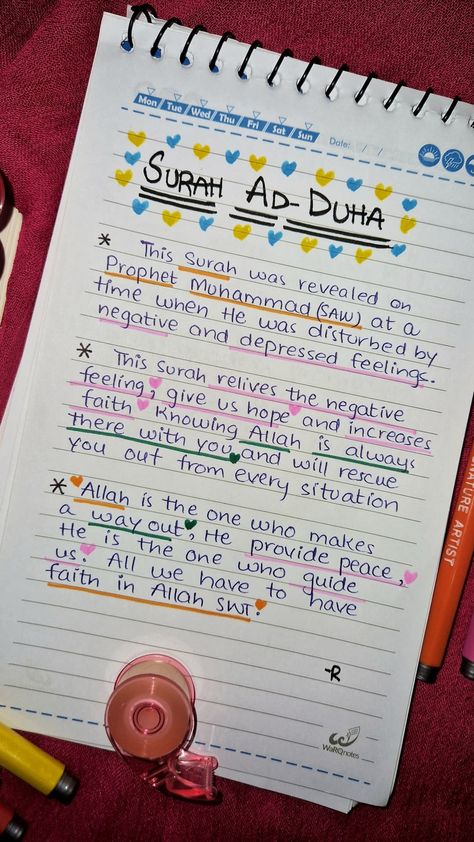 Mon Tue Wed Thu Fri Sat Sun
Date: / /
SURAH AD-DUHA
* This Surah was revealed on
Prophet Muhammad (SAW) at a
time when He was disturbed by
negative and depressed feelings.
* This surah relives the negative
feeling, give us hope and increases
faith Knowing Allah is always
there with you and will rescue
you out from every situation
* Allah is the one who makes
a way out, He provide peace,
He is the one who guide
us. All we have to have
faith in Allah SWT.
-R
WaRQnotes
NATURE ARTIST